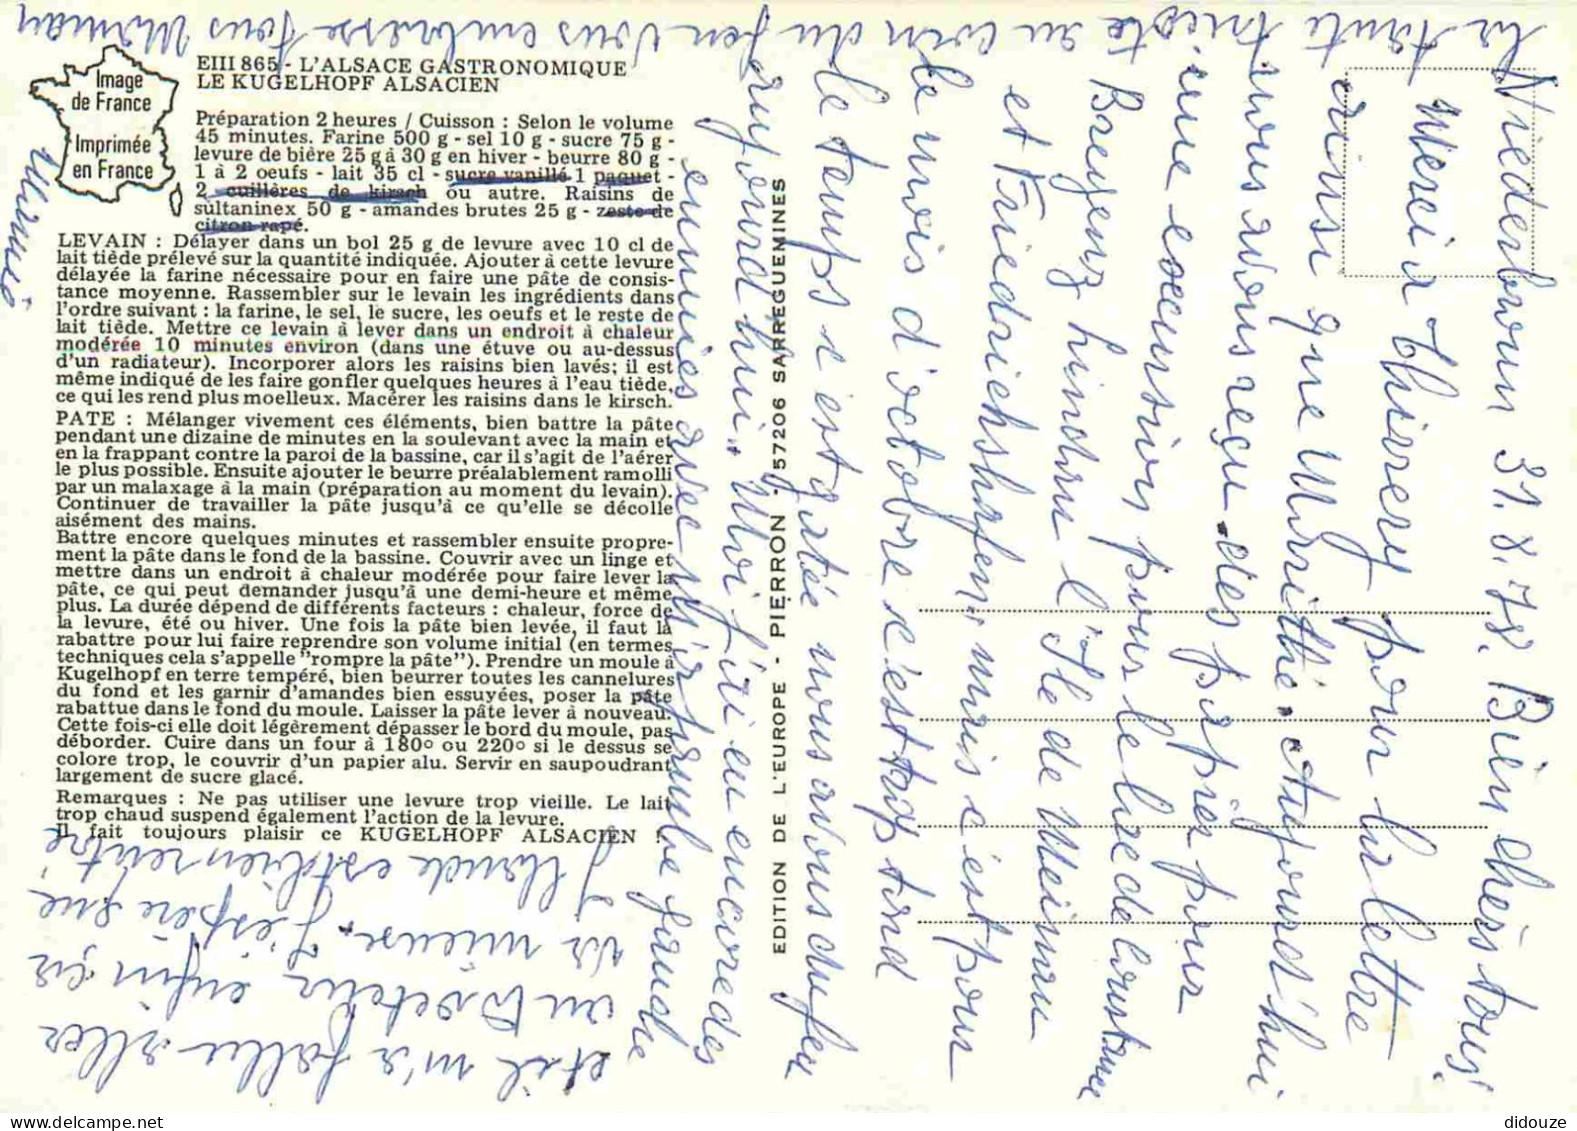 Image
de France
Imprimée
en France
EIII 865 - L'ALSACE GASTRONOMIQUE
LE KUGELHOPF ALSACIEN
Préparation 2 heures / Cuisson : Selon le volume
45 minutes. Farine 500 g - sel 10 g - sucre 75 g -
levure de bière 25 g à 30 g en hiver - beurre 80 g -
1 à 2 oeufs - lait 35 cl - sucre vanillé 1 paquet -
2 cuillères de kirsch ou autre. Raisins de
sultaninex 50 g - amandes brutes 25 g - zeste de
citron rapé.
LEVAIN : Délayer dans un bol 25 g de levure avec 10 cl de
lait tiède prélevé sur la quantité indiquée. Ajouter à cette levure
délayée la farine nécessaire pour en faire une pâte de consis-
tance moyenne. Rassembler sur le levain les ingrédients dans
l'ordre suivant : la farine, le sel, le sucre, les oeufs et le reste de
lait tiède. Mettre ce levain à lever dans un endroit à chaleur
modérée 10 minutes environ (dans une étuve ou au-dessus
d'un radiateur). Incorporer alors les raisins bien lavés; il est
même indiqué de les faire gonfler quelques heures à l'eau tiède,
ce qui les rend plus moelleux. Macérer les raisins dans le kirsch.
PATE : Mélanger vivement ces éléments, bien battre la pâte
pendant une dizaine de minutes en la soulevant avec la main et
en la frappant contre la paroi de la bassine, car il s'agit de l'aérer
le plus possible. Ensuite ajouter le beurre préalablement ramolli
par un malaxage à la main (préparation au moment du levain).
Continuer de travailler la pâte jusqu'à ce qu'elle se décolle
aisément des mains.
Battre encore quelques minutes et rassembler ensuite propre-
ment la pâte dans le fond de la bassine. Couvrir avec un linge et
mettre dans un endroit à chaleur modérée pour faire lever la
pâte, ce qui peut demander jusqu'à une demi-heure et même
plus. La durée dépend de différents facteurs : chaleur, force de
la levure, été ou hiver. Une fois la pâte bien levée, il faut la
rabattre pour lui faire reprendre son volume initial (en termes
techniques cela s'appelle "rompre la pâte"). Prendre un moule à
Kugelhopf en terre tempéré, bien beurrer toutes les cannelures
du fond et les garnir d'amandes bien essuyées, poser la pâte
rabattue dans le fond du moule. Laisser la pâte lever à nouveau.
Cette fois-ci elle doit légèrement dépasser le bord du moule, pas
déborder. Cuire dans un four à 180o ou 220o si le dessus se
colore trop, le couvrir d'un papier alu. Servir en saupoudrant
largement de sucre glacé.
Remarques : Ne pas utiliser une levure trop vieille. Le lait
trop chaud suspend également l'action de la levure.
Il fait toujours plaisir ce KUGELHOPF ALSACIEN !
EDITION DE L'EUROPE - PIERRON - 57206 SARREGUEMINES
Niederbronn 31.8.78. Bien chers tous!
Merci à Thierry pour la lettre
ainsi que Marithé. Aujourd'hui
nous avons reçu des papiers pour
une excursion pour le lac de Constance
Bregenz Lindau l'Île de Meinau
et Friedrichshafen, mais c'est pour
le mois d'octobre c'est trop tard
le temps s'est gâté nous avons du feu
aujourd'hui. Moi j'ai eu encore des
ennuies avec ma jambe gauche
et il m'a fallu aller
au docteur enfin ça
va mieux. J'espère que
Claude est bien rentré
La tante tricote au coin du feu Vous embrasse tous Maman
Mamie
didouze